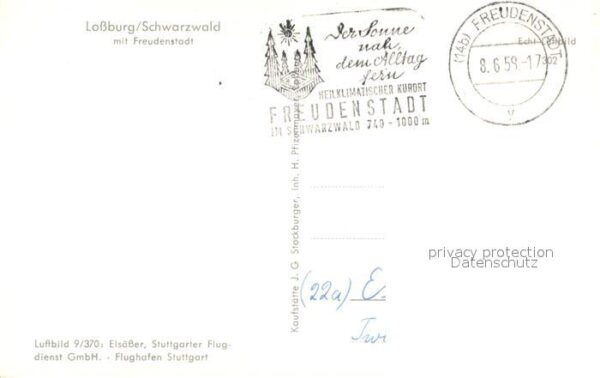 Loßburg/Schwarzwald
mit Freudenstadt
Der Sonne
nah,
dem Alltag
fern
HEILKLIMATISCHER KURORT
FREUDENSTADT
IM SCHWARZWALD 740-1000 m
(14b) FREUDENSTADT
8.6.59.-17
y
Echt
bild
302
Kaufstätte J. G Stockburger, Inh. H. Pfizenmayer
privacy protection
Datenschutz
(22a) E
Luftbild 9/370: Elsäßer, Stuttgarter Flug-
dienst GmbH. - Flughafen Stuttgart